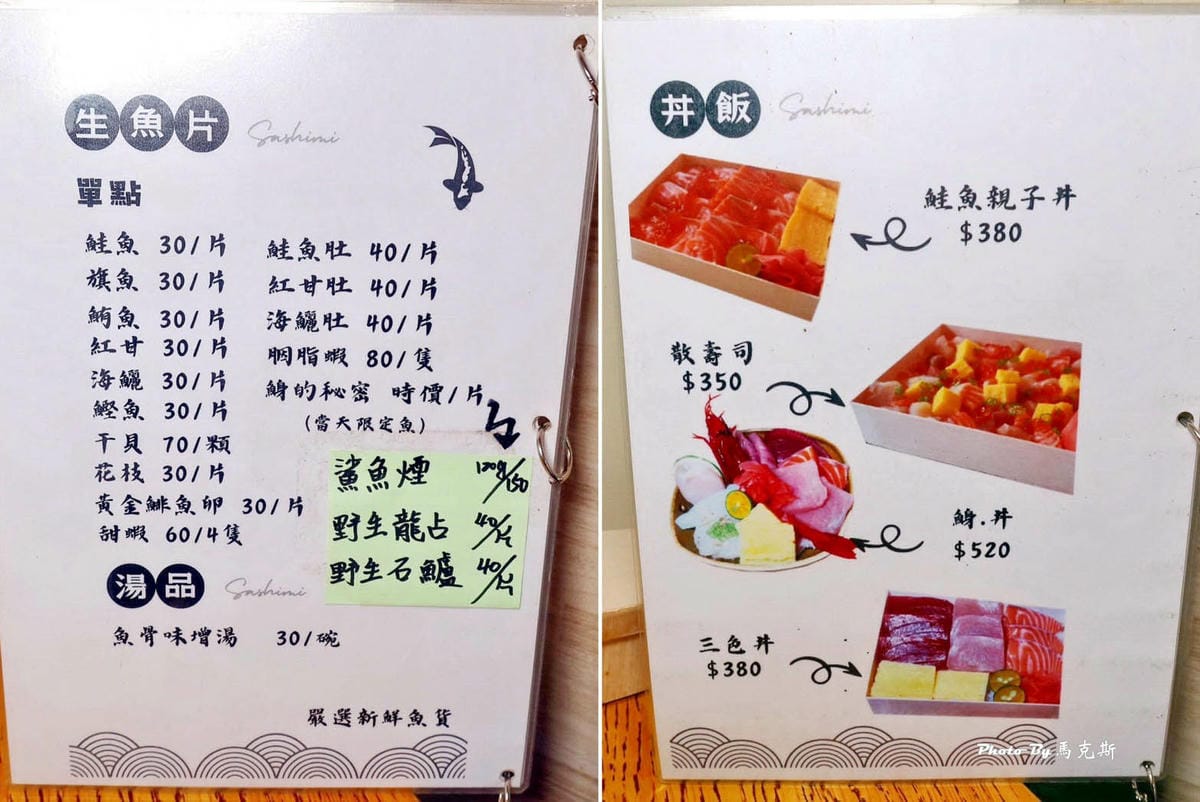 生魚片 Sashimi
單點
鮭魚 30/片
旗魚 30/片
鮪魚 30/片
紅甘 30/片
海鱺 30/片
鰹魚 30/片
干貝 70/顆
花枝 30/片
黃金鯡魚卵 30/片
甜蝦 60/4隻
鮭魚肚 40/片
紅甘肚 40/片
海鱺肚 40/片
胭脂蝦 80/隻
鯓的秘密 時價/片
(當天限定魚)
鯊魚煙 120g/150
野生龍占 40/片
野生石鱸 40/片
湯品 Sashimi
魚骨味增湯 30/碗
嚴選新鮮魚貨
丼飯 Sashimi
鮭魚親子丼
$380
散壽司
$350
鯓.丼
$520
三色丼
$380
Photo By 馬克斯